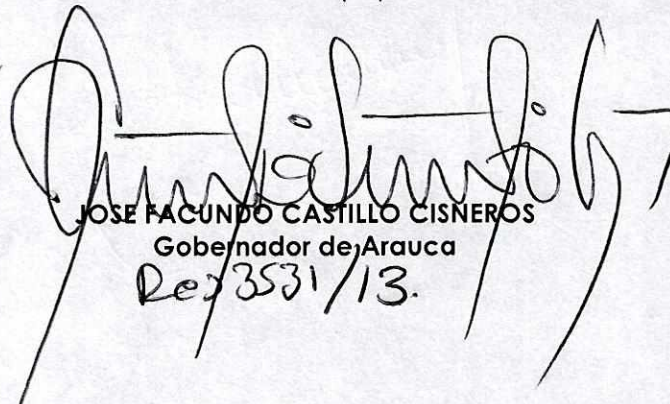 JOSE FACUNDO CASTILLO CISNEROS
Gobernador de Arauca
3531/13.